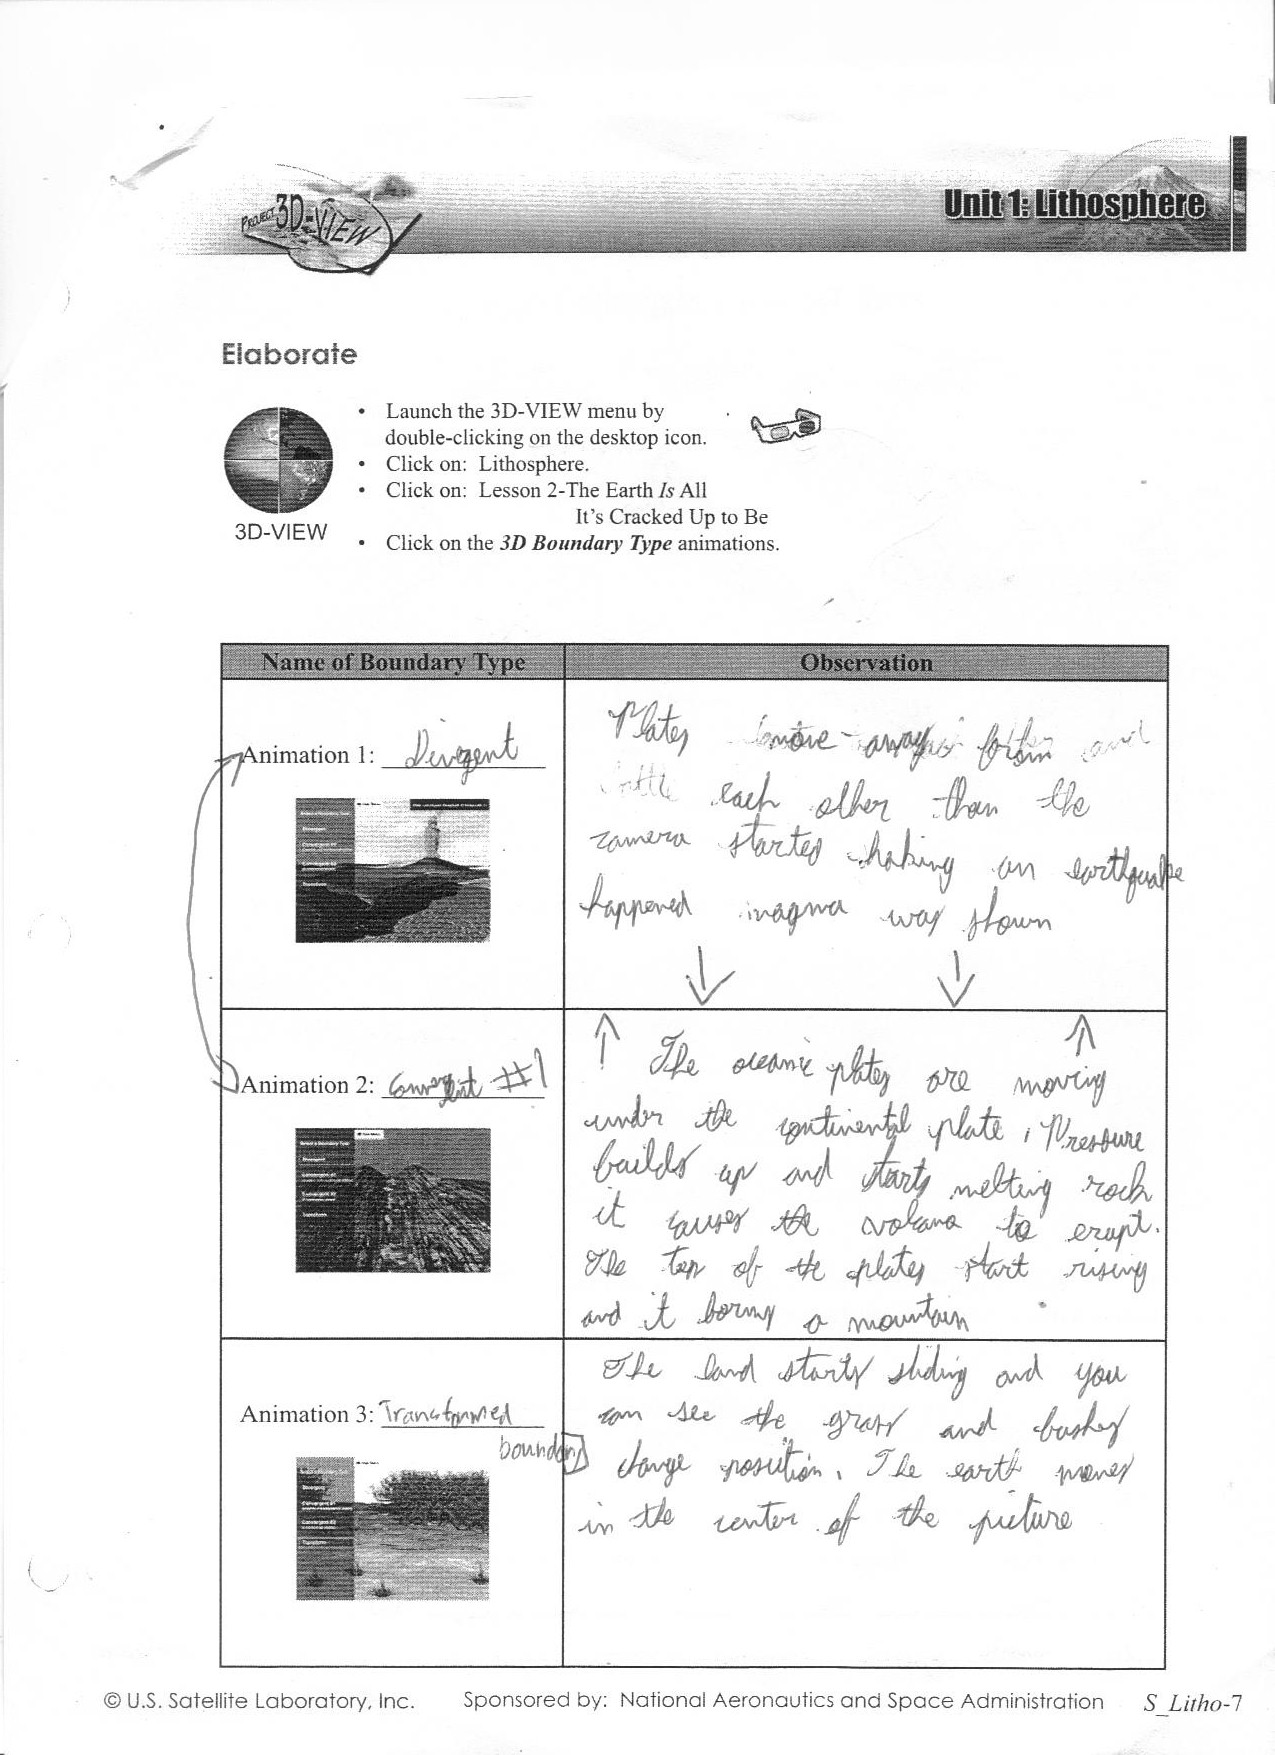 PROJECT 3D-VIEW
Unit 1: Lithosphere
Elaborate
• Launch the 3D-VIEW menu by
double-clicking on the desktop icon.
• Click on: Lithosphere.
• Click on: Lesson 2-The Earth Is All
It's Cracked Up to Be
3D-VIEW
• Click on the 3D Boundary Type animations.
Name of Boundary Type
Observation
Animation 1: Divergent
Plates move away from
each other than the
camera started shaking an earthquake
happened magma was shown
Animation 2: Convergent #1
The oceanic plates are moving
under the continental plate, Pressure
builds up and starts melting rock
it causes the volcano to erupt.
The top of the plates start rising
and it forms a mountain
Animation 3: Transformed
boundary
The land starts sliding and you
can see the grass and bushes
change position. The earth moves
in the center of the picture
© U.S. Satellite Laboratory, Inc. Sponsored by: National Aeronautics and Space Administration S_Litho-7